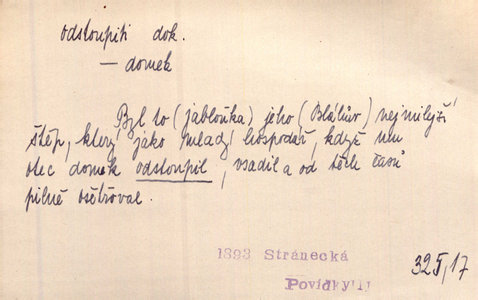 odstoupiti dok.
— domek
Byl to (jabloňka) jeho (Bláhův) nejmilejší
štěp, který jako mladý hospodář, když mu
otec domek odstoupil, vsadil a od těch časů
pilně ošetřoval.
1893 Stránecká
Povídky
325,17